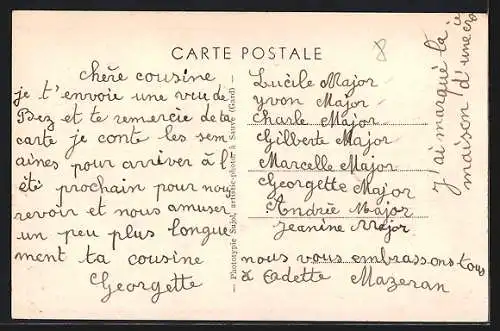 CARTE POSTALE
chère cousine
je t'envoie une vue de
Bez et te remercie de ta
carte je conte les sem
aines pour arriver à l'
été prochain pour nou
revoir et nous amuser
un peu plus longue
ment ta cousine
Georgette
— Phototypie Supol, artistic-photo, à Sauve (Gard) —
Lucile Major
yvon Major
Charle Major
Gilberte Major
Marcelle Major
Georgette Major
Andrée Major
jeanine Major
nous vous embrassons tous
Odette Mazeran
J'ai marqué la
maison d'une